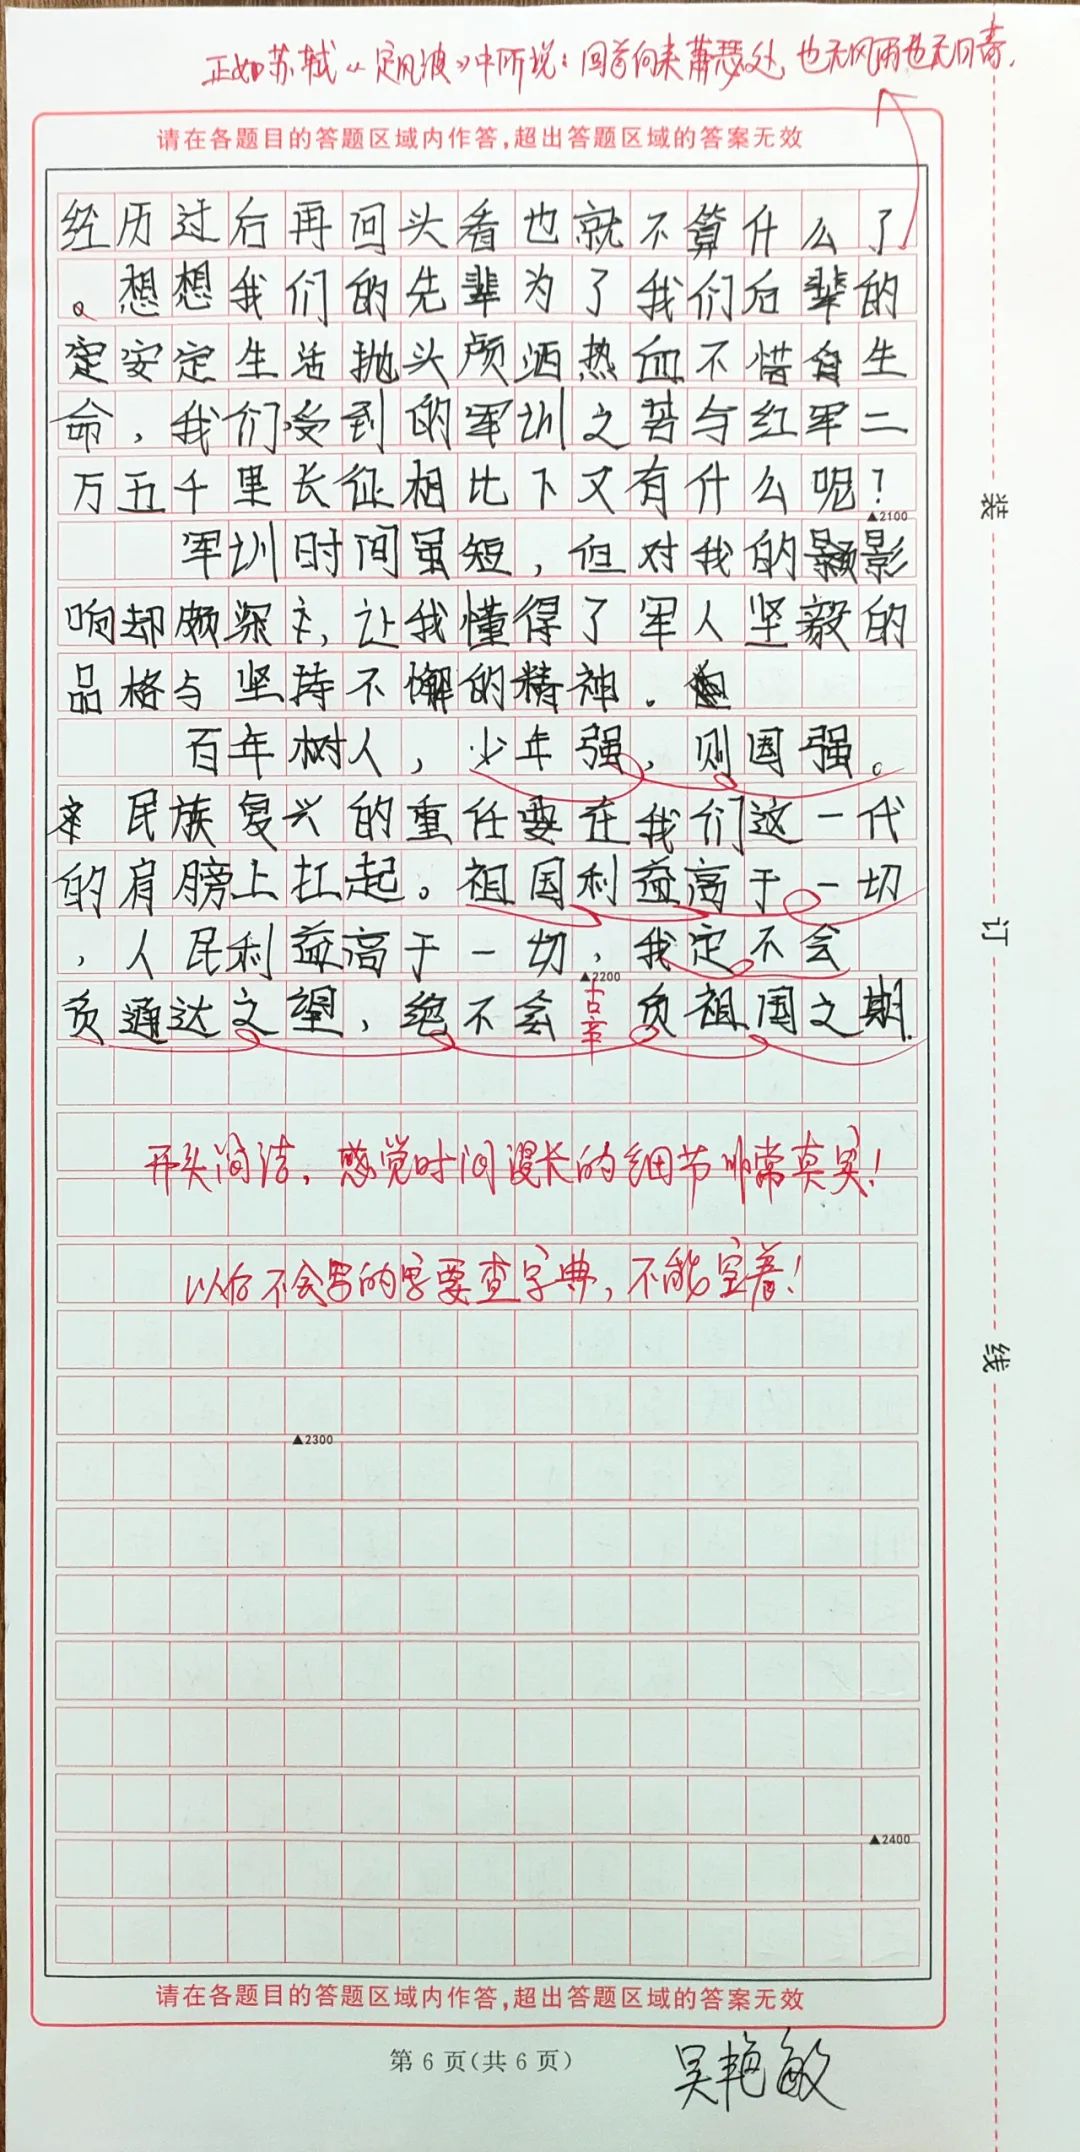 正如苏轼《定风波》中所说：回首向来萧瑟处，也无风雨也无晴.
请在各题目的答题区域内作答,超出答题区域的答案无效
经历过后再回头看也就不算什么了
。想想我们的先辈为了我们后辈的
定安定生活抛头颅洒热血不惜生
命，我们受到的军训之苦与红军二
万五千里长征相比下又有什么呢？
▲2100
军训时间虽短，但对我的影
响却颇深，让我懂得了军人坚毅的
品格与坚持不懈的精神。
百年树人，少年强，则国强。
民族复兴的重任要在我们这一代
的肩膀上扛起。祖国利益高于一切
，人民利益高于一切，我定不会
▲2200
负通达之望，绝不会辜负祖国之期.
开头简洁，感觉时间漫长的细节非常真实！
以后不会写的字要查字典，不能空着！
▲2300
▲2400
请在各题目的答题区域内作答,超出答题区域的答案无效
第 6 页(共 6 页)
吴艳敏
装
订
线